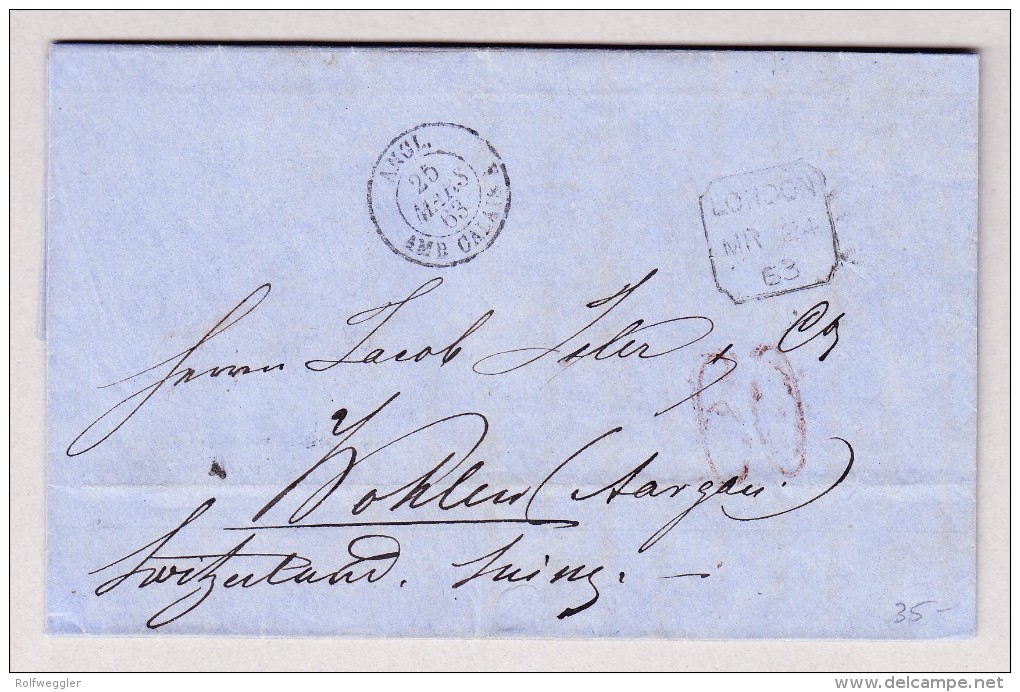 ANGL.
25
MARS
63
AMB CALAIS
LONDON
MR 24
63
Herrn Jacob Isler & Co
60
Wohlen (Aargau.)
Switzerland.
35-
Rolfweggler
www.delcampe.net